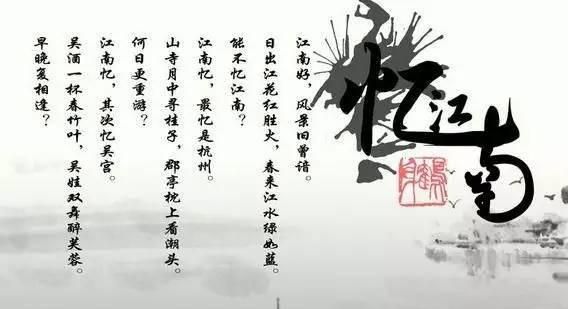 忆江南
江南好，风景旧曾谙。
日出江花红胜火，春来江水绿如蓝。
能不忆江南？
江南忆，最忆是杭州。
山寺月中寻桂子，郡亭枕上看潮头。
何日更重游？
江南忆，其次忆吴宫。
吴酒一杯春竹叶，吴娃双舞醉芙蓉。
早晚复相逢？